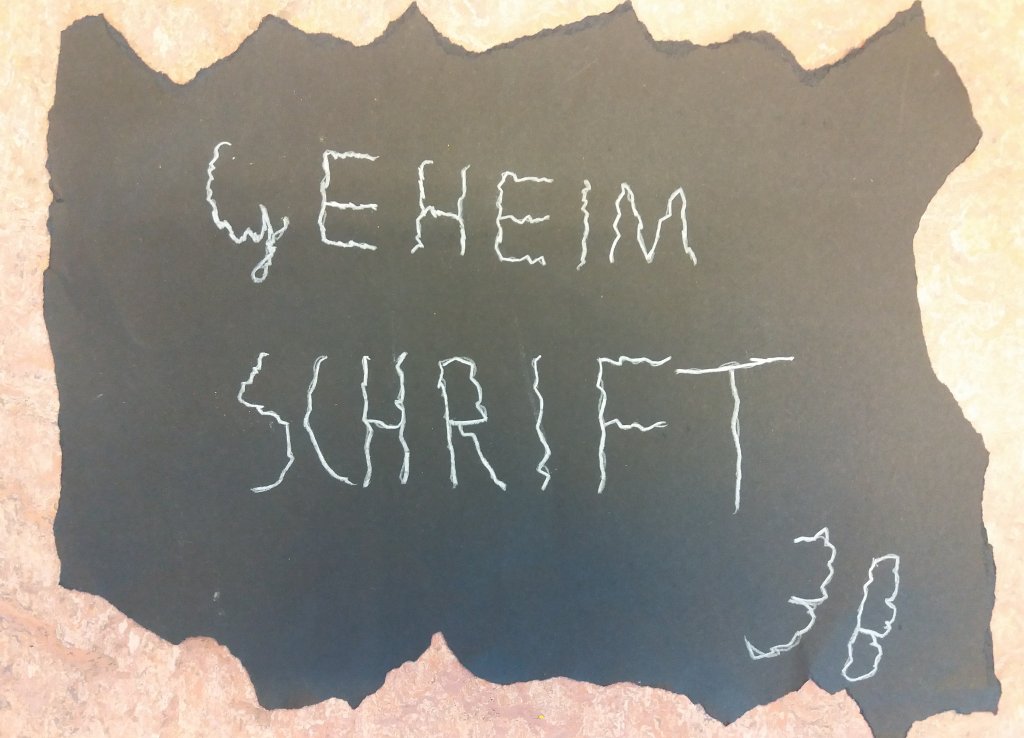 GEHEIM
SCHRIFT
3B